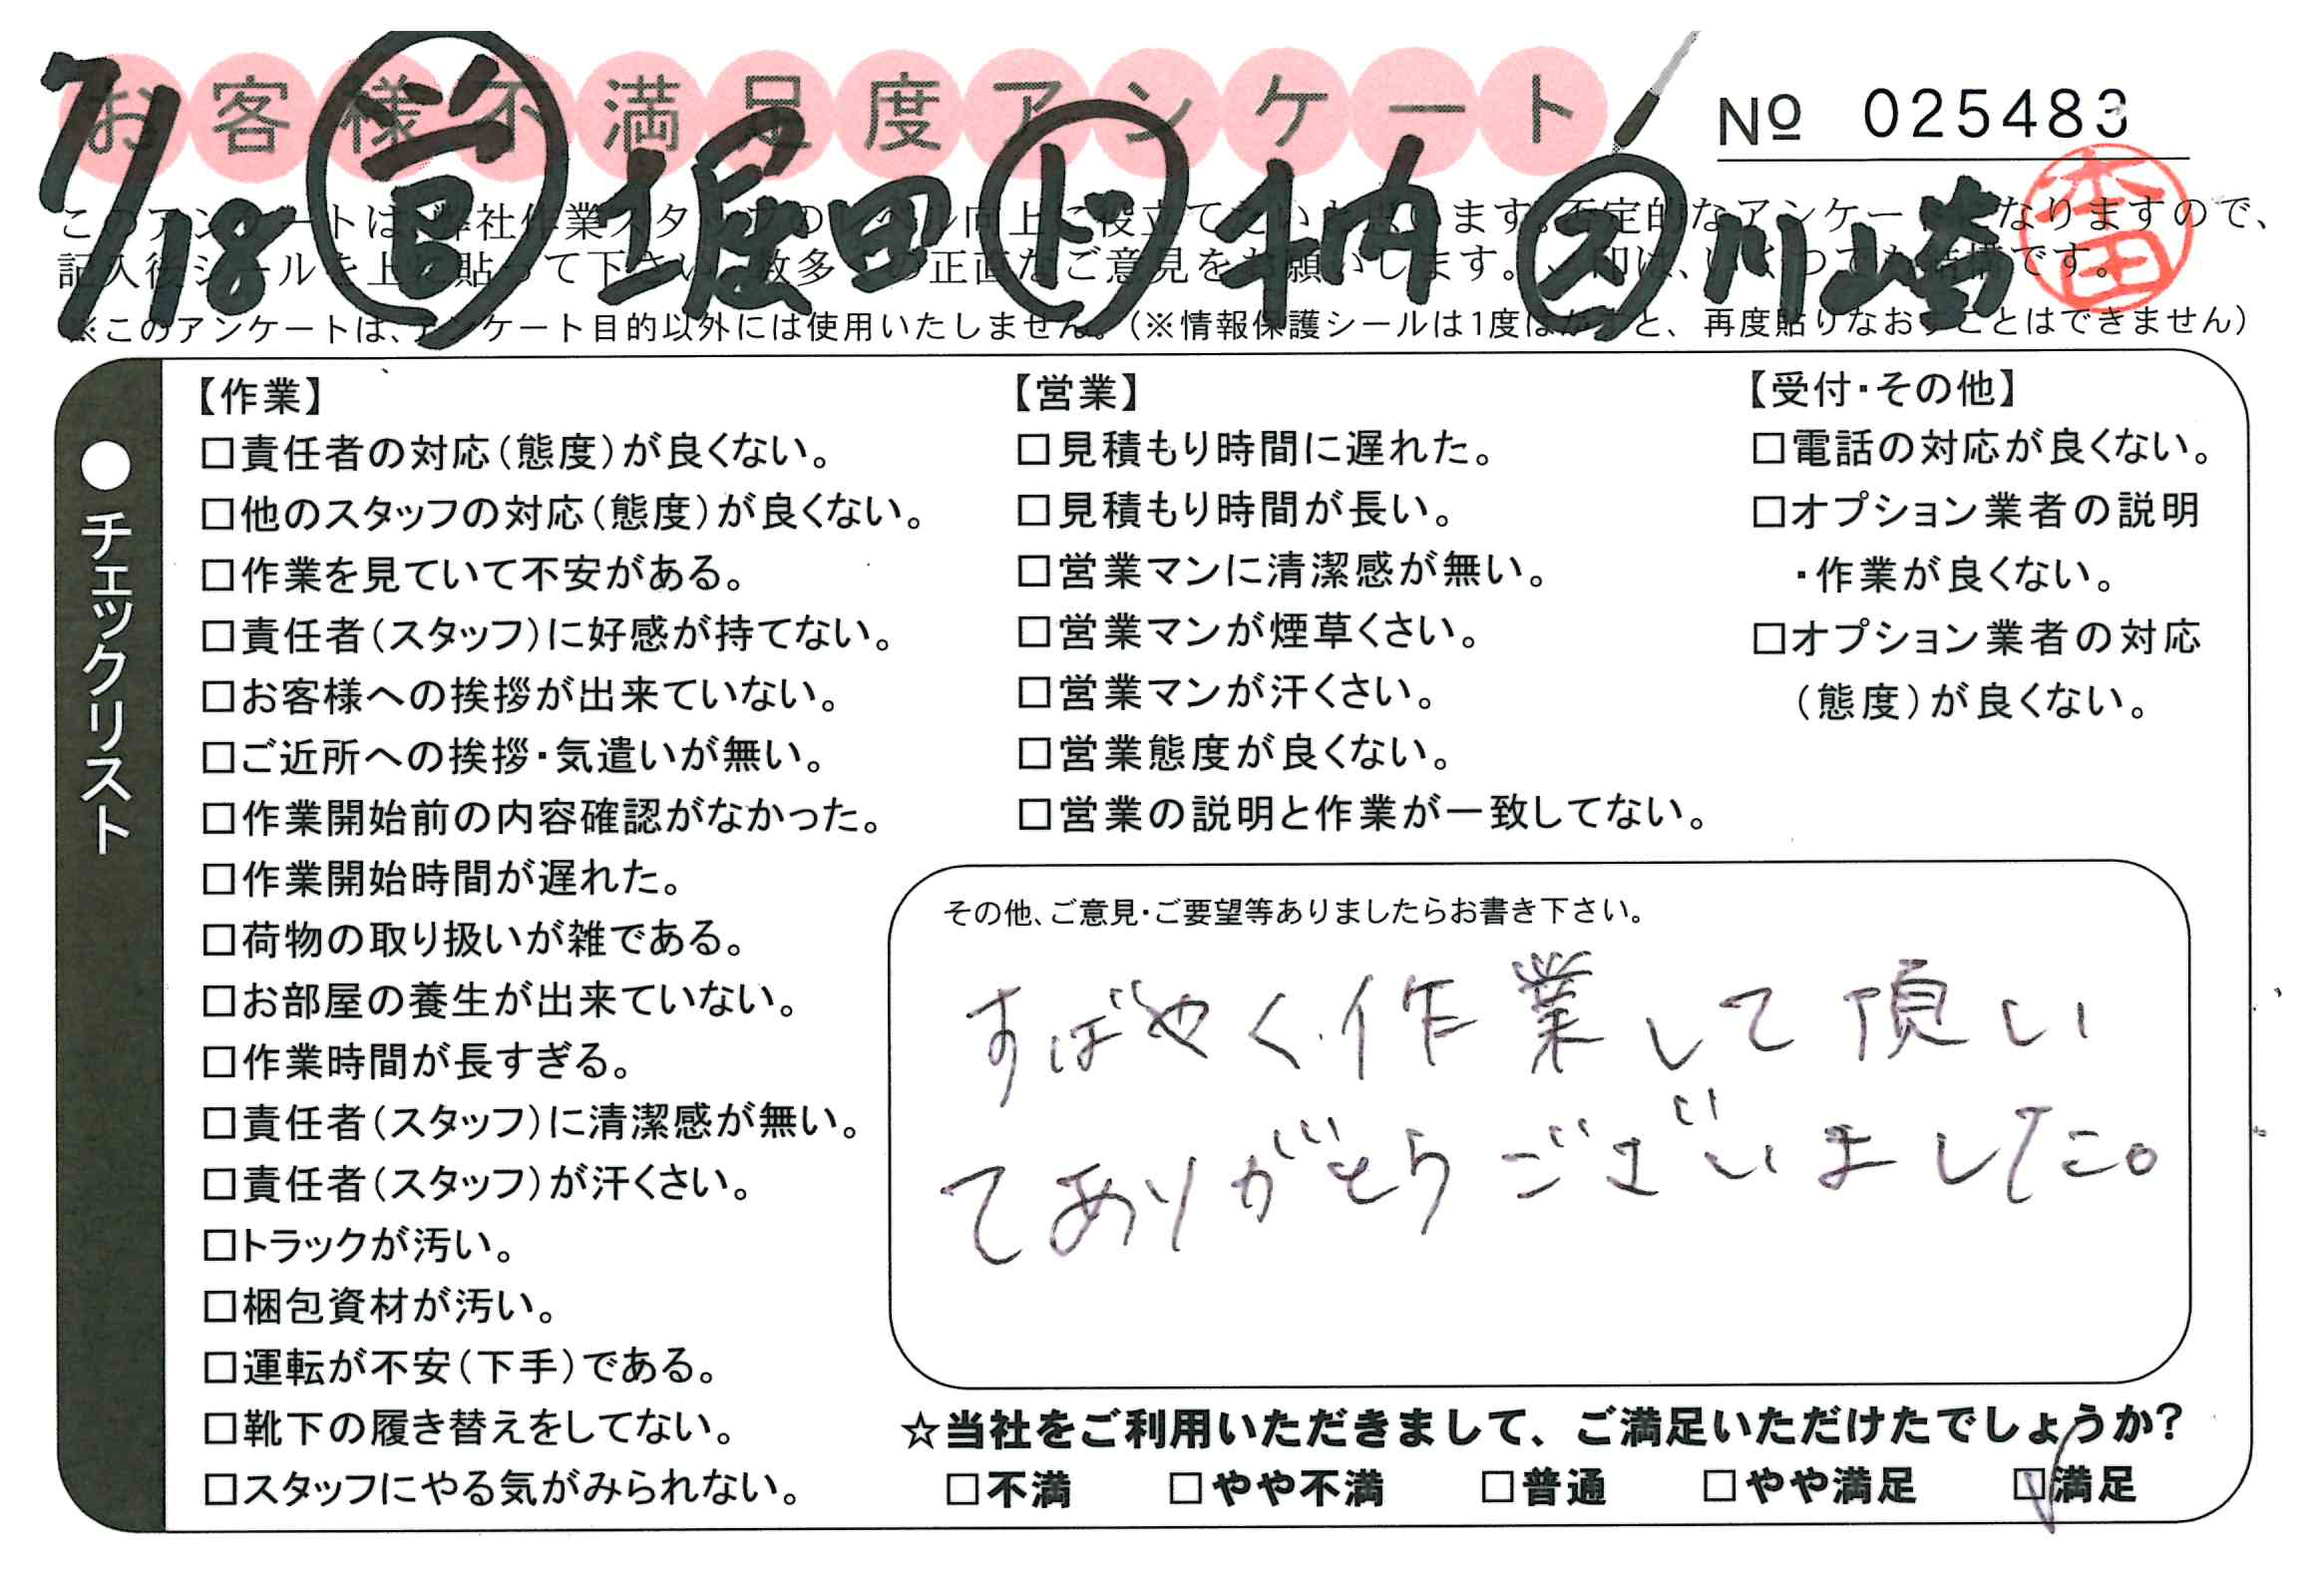 お客様不満足度アンケート
No 025483
7/18 営 堀田 ド 枘 ス 川崎
このアンケートは、弊社作業スタッフのレベル向上に役立てたいと思います。否定的なアンケートになりますので、
記入後シールを上に貼って下さい。数多くの正直なご意見をお願いします。
※このアンケートは、アンケート目的以外には使用いたしません。(※情報保護シールは1度はがすと、再度貼りなおすことはできません)
●チェックリスト
【作業】
□責任者の対応(態度)が良くない。
□他のスタッフの対応(態度)が良くない。
□作業を見ていて不安がある。
□責任者(スタッフ)に好感が持てない。
□お客様への挨拶が出来ていない。
□ご近所への挨拶・気遣いが無い。
□作業開始前の内容確認がなかった。
□作業開始時間が遅れた。
□荷物の取り扱いが雑である。
□お部屋の養生が出来ていない。
□作業時間が長すぎる。
□責任者(スタッフ)に清潔感が無い。
□責任者(スタッフ)が汗くさい。
□トラックが汚い。
□梱包資材が汚い。
□運転が不安(下手)である。
□靴下の履き替えをしてない。
□スタッフにやる気がみられない。
【営業】
□見積もり時間に遅れた。
□見積もり時間が長い。
□営業マンに清潔感が無い。
□営業マンが煙草くさい。
□営業マンが汗くさい。
□営業態度が良くない。
□営業の説明と作業が一致してない。
【受付・その他】
□電話の対応が良くない。
□オプション業者の説明
・作業が良くない。
□オプション業者の対応
(態度)が良くない。
その他、ご意見・ご要望等ありましたらお書き下さい。
すばやく作業して頂い
てありがとうございました。
☆当社をご利用いただきまして、ご満足いただけたでしょうか?
□不満 □やや不満 □普通 □やや満足 ☑満足